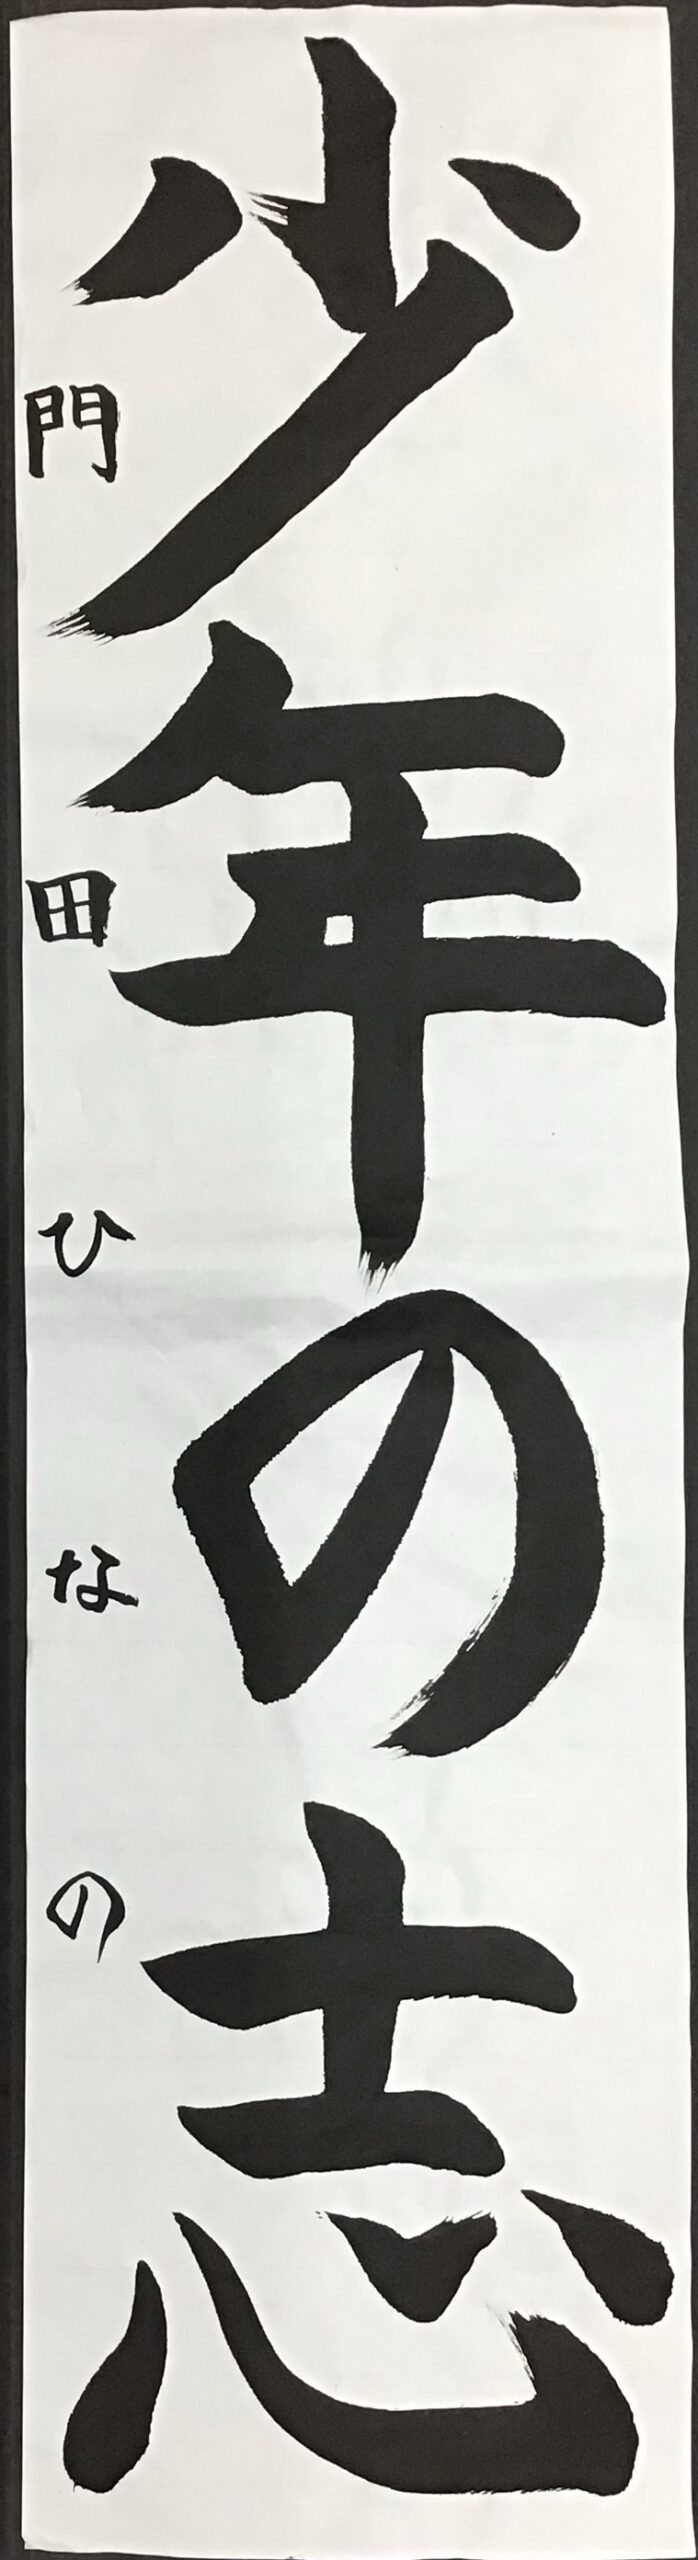 少年の志
門田ひなの